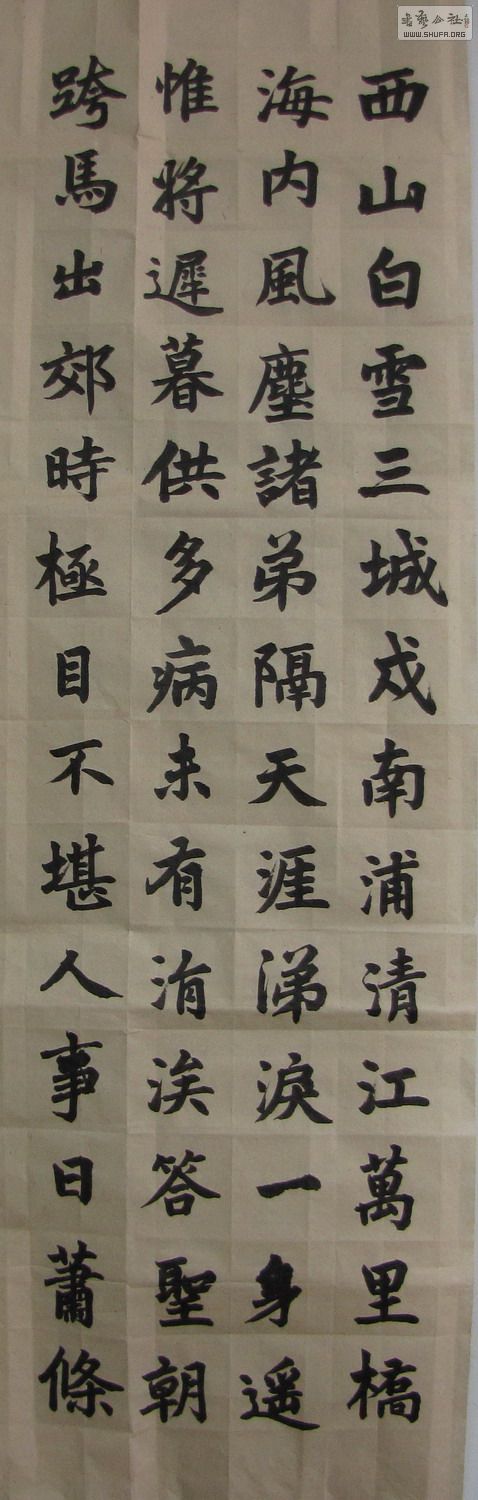 書藝公社
WWW.SHUFA.ORG
西山白雪三城戍南浦清江萬里橋
海内風塵諸弟隔天涯涕淚一身遥
惟將遲暮供多病未有涓涘答聖朝
跨馬出郊時極目不堪人事日蕭條